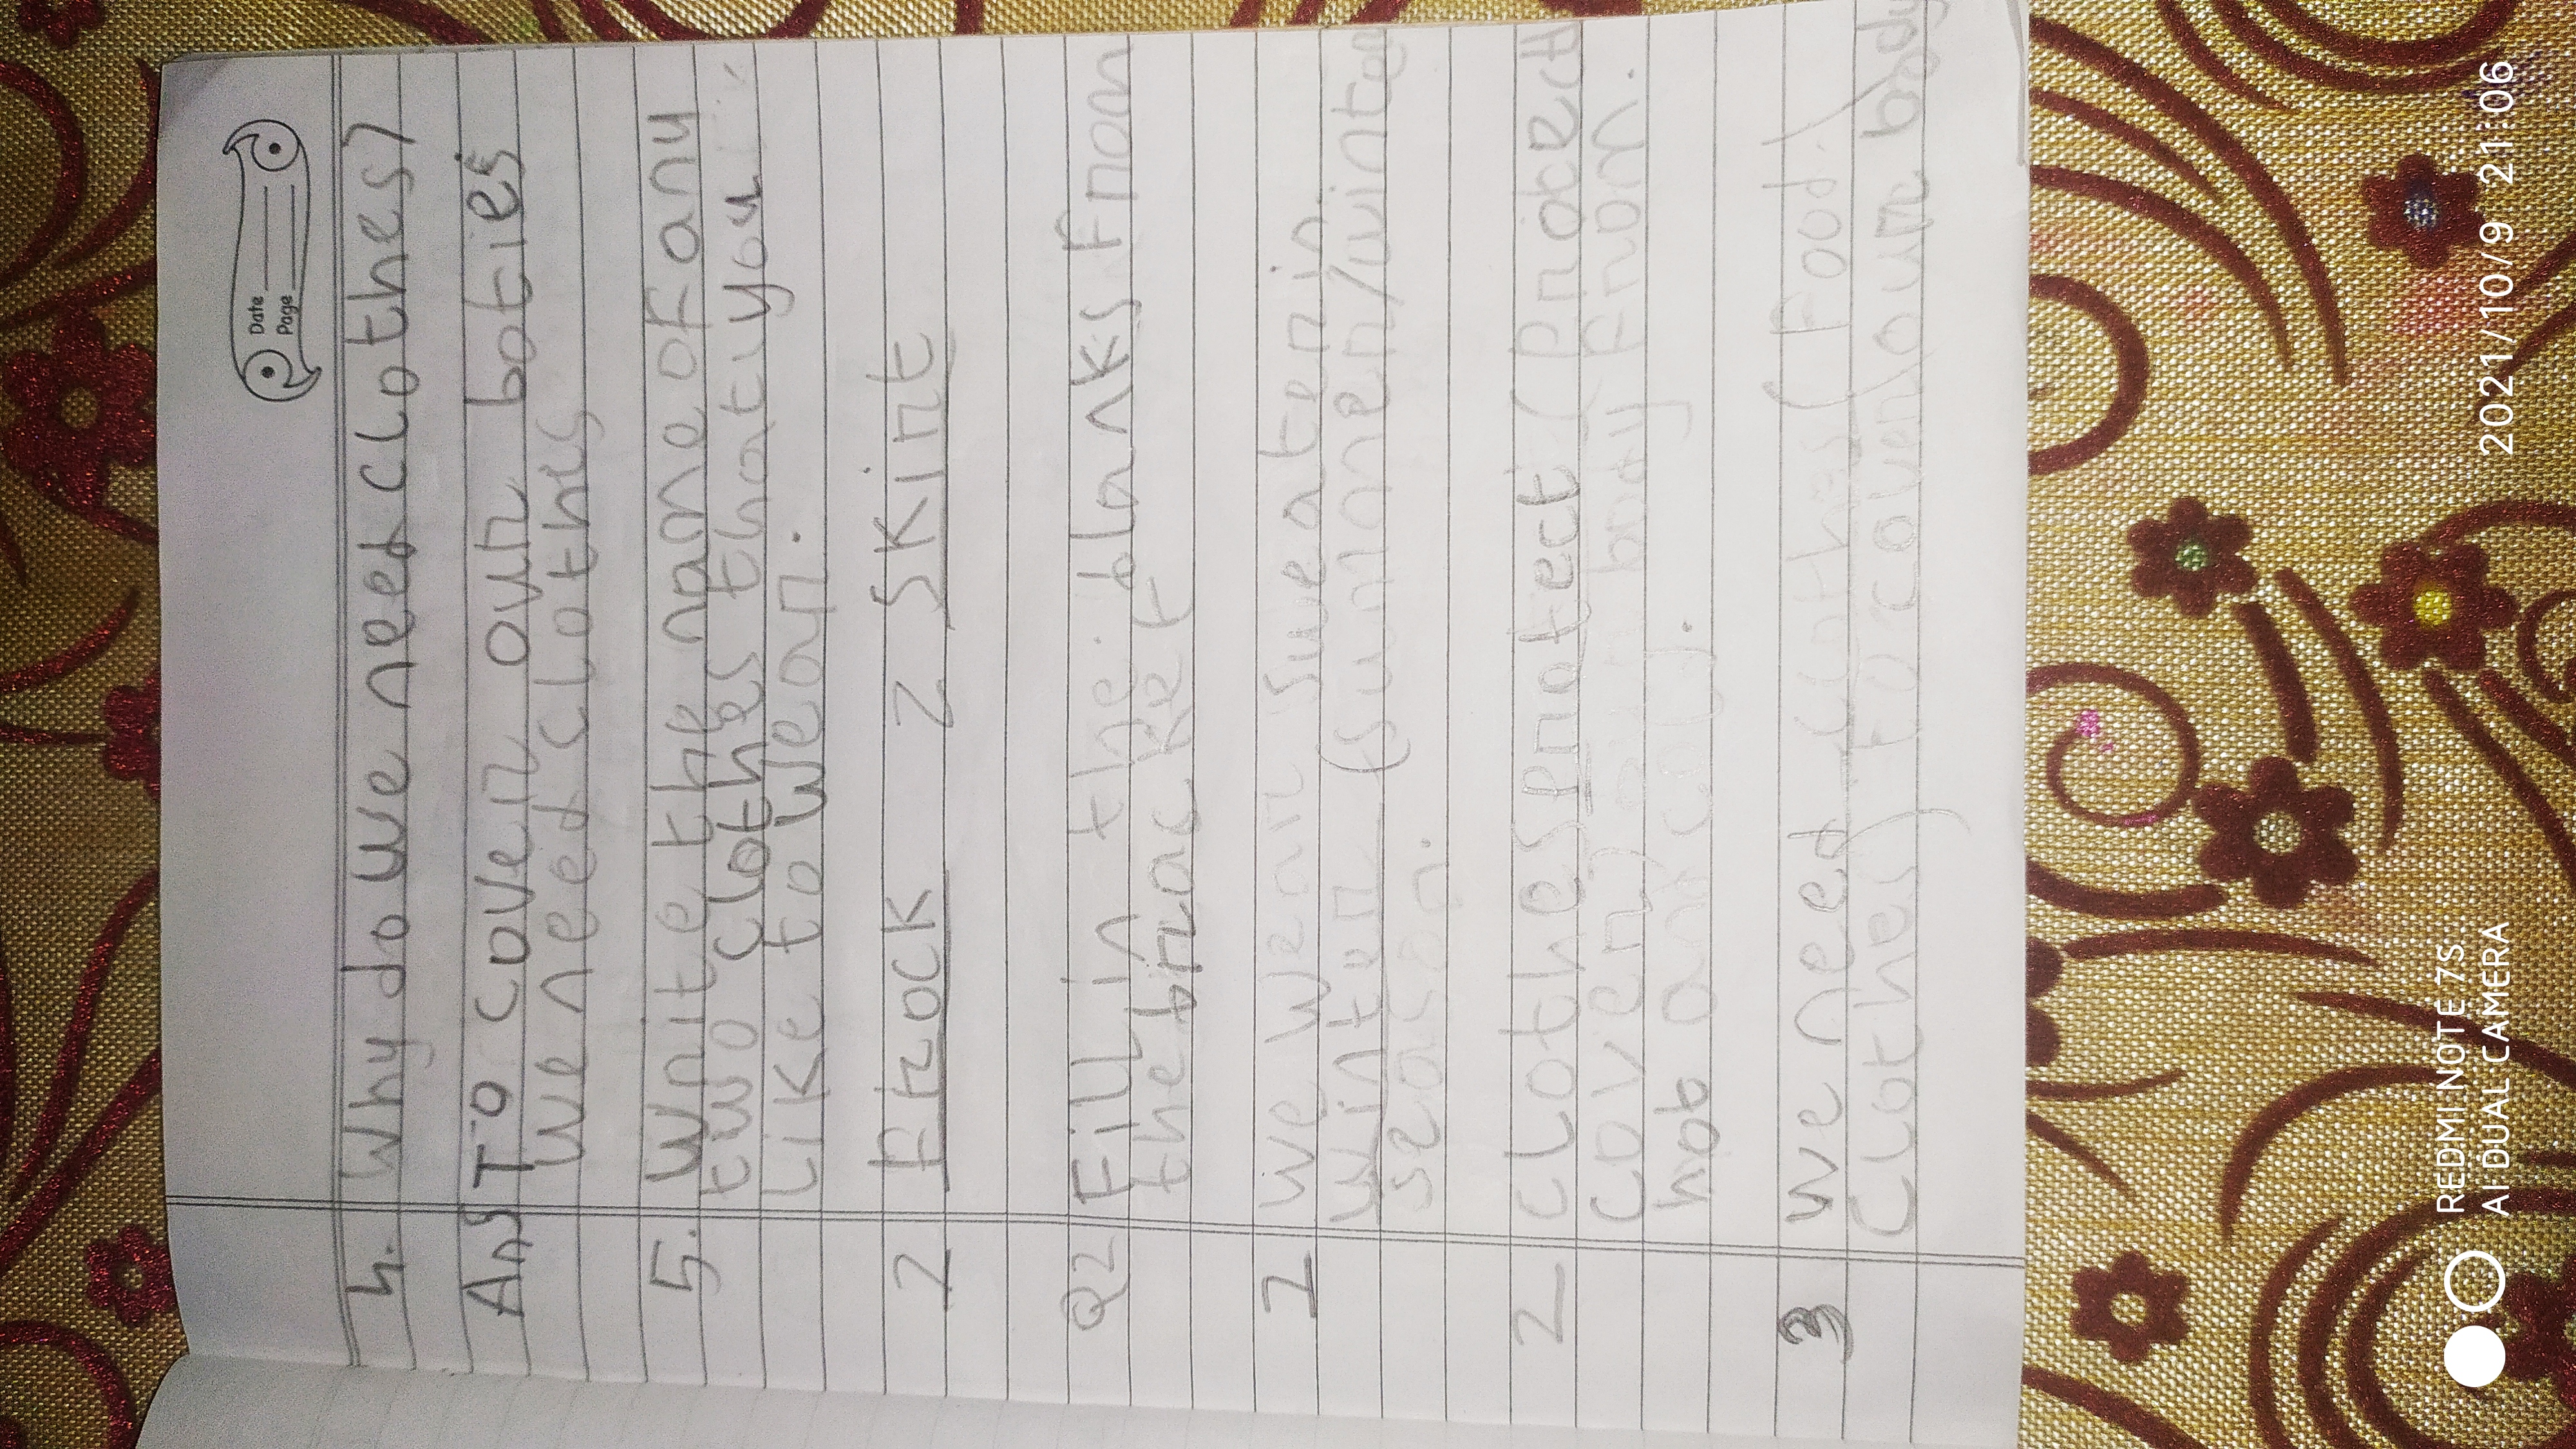 Date
Page
4. Why do we need clothes?
Ans To cover our boties
we need clothis
5. Write the name of any
two clothes that you
like to wear.
1 Frock 2 Skirt
Q2 Fill in the blanks from
the bracket
1 we wear sweater in
winter (summer/winter
season.
2 clothes protect (protect
cover) body from
hot and cold.
3 we need clothes (Food/
clothes) to cover our body
REDMI NOTE 7S
AI DUAL CAMERA
2021/10/9 21:06